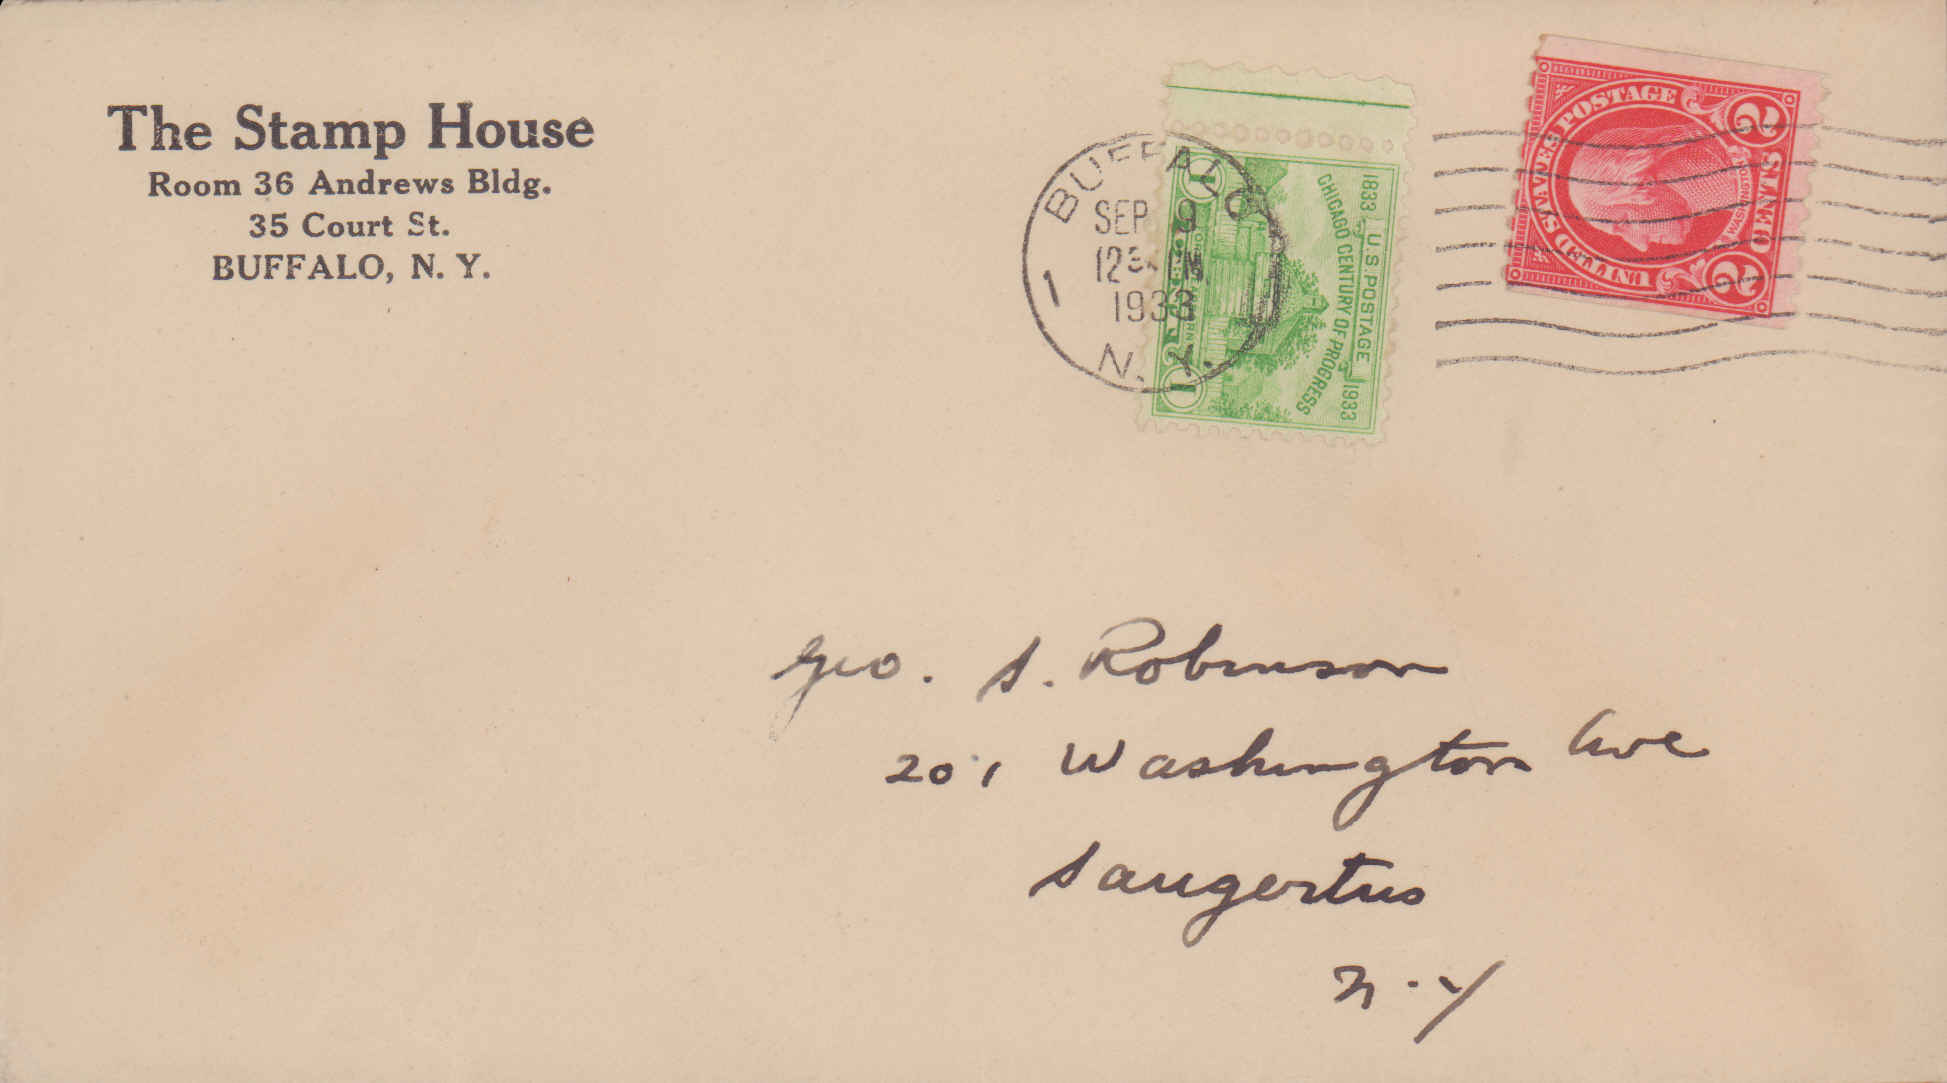 The Stamp House
Room 36 Andrews Bldg.
35 Court St.
BUFFALO, N. Y.
BUFFALO
SEP 9
12
1933
N. Y.
1
1833 U.S. POSTAGE 1933
CHICAGO CENTURY OF PROGRESS
1 1
UNITED STATES POSTAGE
WASHINGTON
2 CENTS 2
Geo. S. Robinson
201 Washington Ave
Saugerties
N.Y